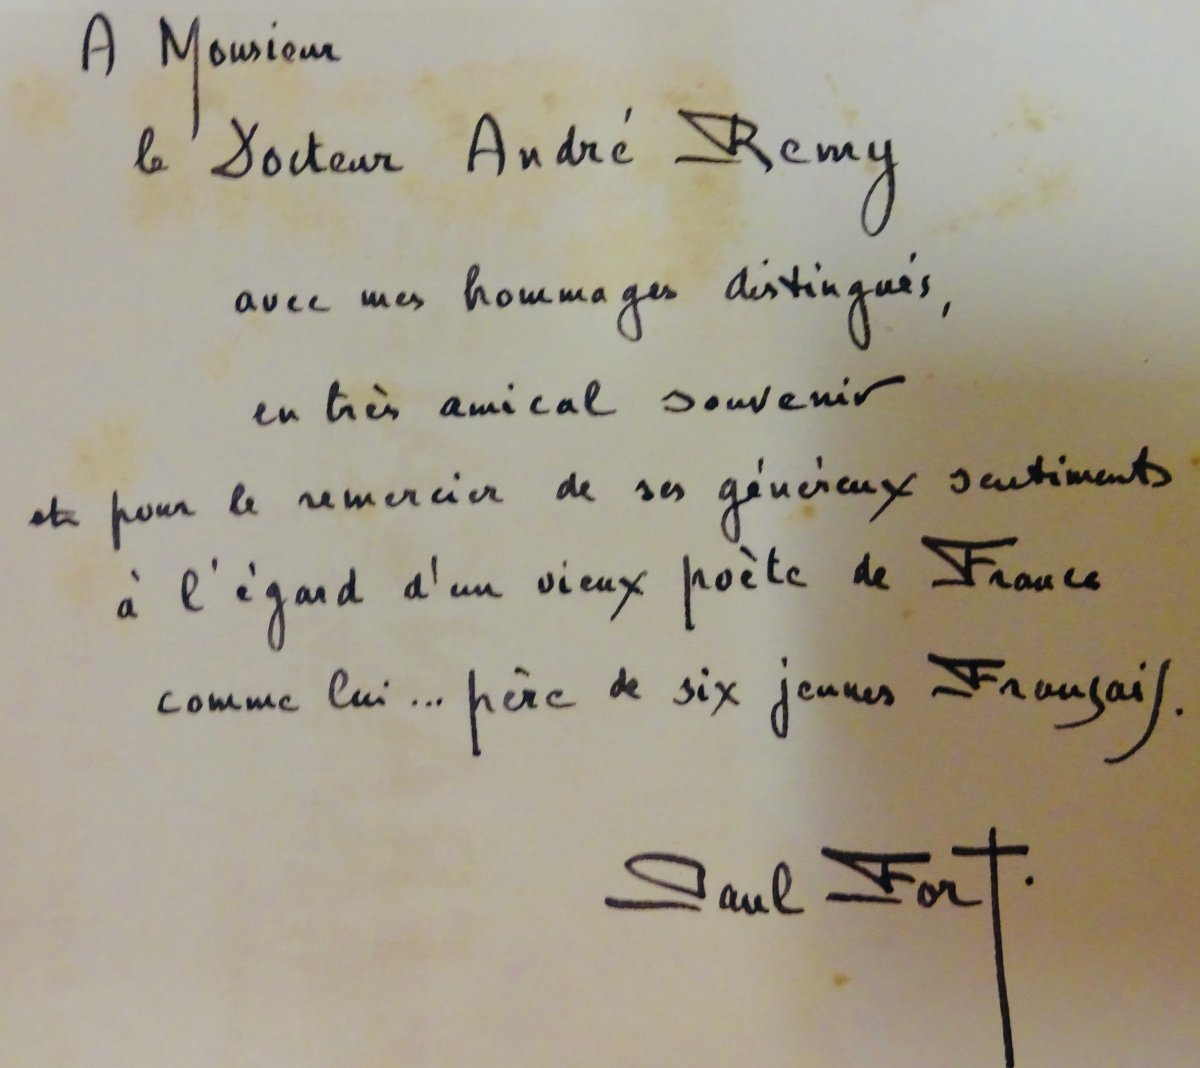 A Monsieur
le Docteur André Remy
avec mes hommages distingués,
en très amical souvenir
et pour le remercier de ses généreux sentiments
à l'égard d'un vieux poète de France
comme lui... père de six jeunes Français.
Paul Fort.